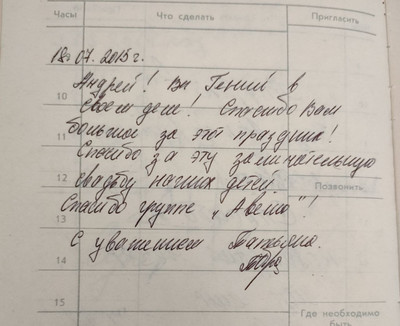 Часы Что сделать Пригласить
18.07.2015 г.
Андрей! Вы Гений в
10
своем деле! Спасибо Вам
11
большое за этот праздник!
Спасибо за эту замечательную
12
свадьбу наших детей.
Позвонить
Спасибо группе "Авеню"!
13
С уважением Татьяна.
14
15
Где необходимо
быть